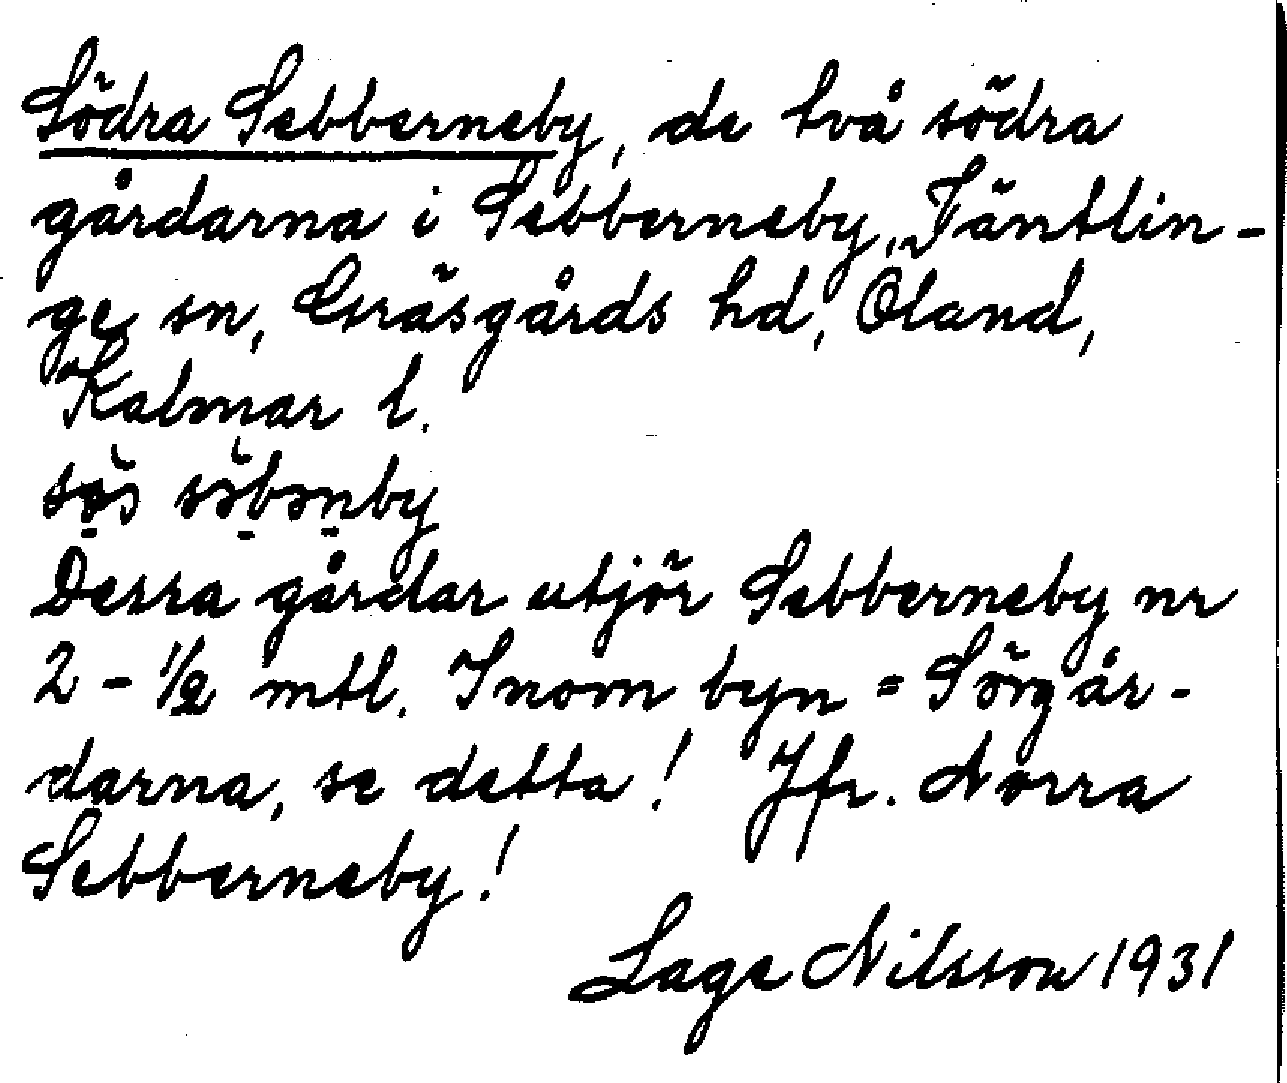 Södra Sebberneby, de två södra
gårdarna i Sebberneby, Väntlin-
ge sn, Gräsgårds hd, Öland,
Kalmar l.
Dessa gårdar utjör Sebberneby nr
2 - 1/2 mtl. Inom byn = Sörgår-
darna, se detta! Jfr. Norra
Sebberneby!
Lage Nilsson 1931